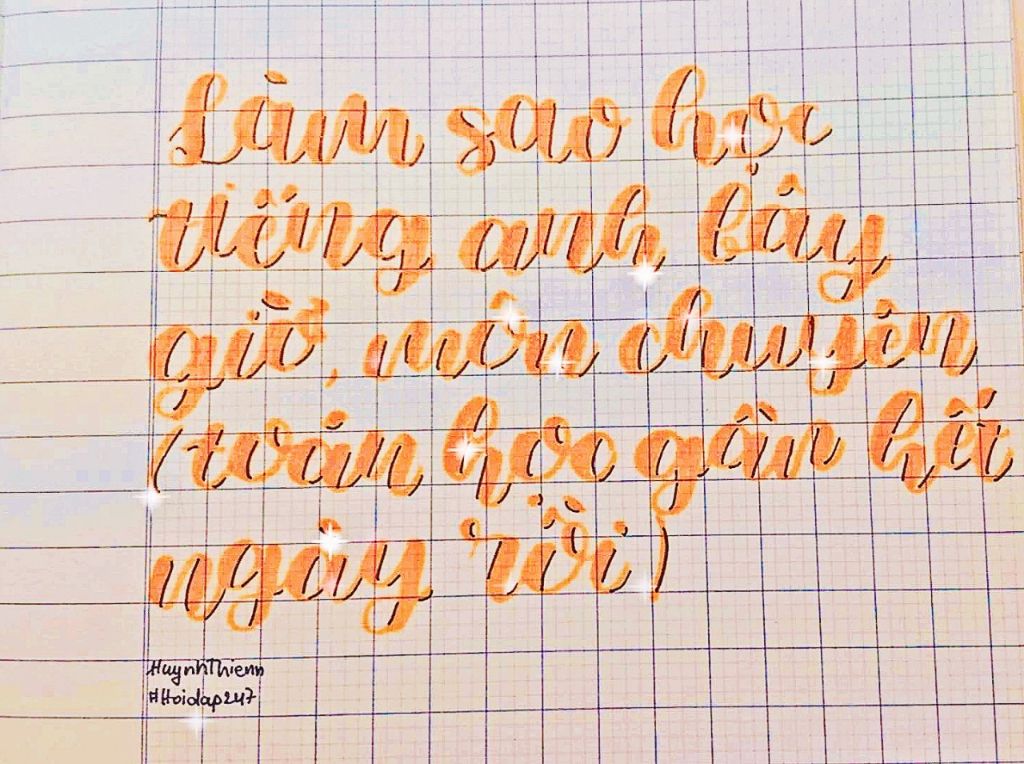 Làm sao học
tiếng anh bây
giờ, môn chuyên
(toán học gần hết
ngày rồi)
HuynhThienn
#Hoidap247